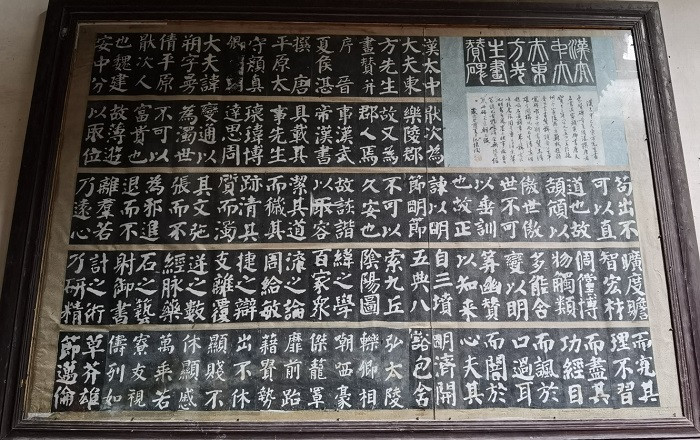 漢太
中大
夫東
方先
生畫
贊碑
漢太中
大夫東
方先生
畫贊并
序 晉
夏侯湛
撰 唐
平原太
守顏真
卿
大夫諱
朔字曼
倩平原
厭次人
也魏建
安中分
厭次為
樂陵郡
故又為
郡人焉
事漢武
帝漢書
具載其
事先生
瓌瑋博
達思周
變通以
為濁世
不可以
富貴也
故薄遊
以取位
苟出不
可以直
道也故
頡頏以
傲世傲
世不可
以垂訓
也故正
諫以明
節明節
不可以
久安也
故詼諧
以取容
潔其道
而穢其
跡清其
質而濁
其文弛
張而不
為邪進
退而不
離羣若
乃遠心
曠度贍
智宏材
倜儻博
物觸類
多能合
變以明
筭幽贊
以知來
自三墳
五典八
索九丘
陰陽圖
緯之學
百家衆
流之論
周給敏
捷之辯
支離覆
逆之數
經脉藥
石之藝
射御書
計之術
乃研精
而究其
理不習
而盡其
功經目
而諷於
口過耳
而闇於
心夫其
明濟開
豁包含
弘大陵
轢卿相
嘲哂豪
傑籠罩
靡前跆
籍貴勢
出不休
顯賤不
萬乘若
寮友視
儔列如
草芥雄
節邁倫